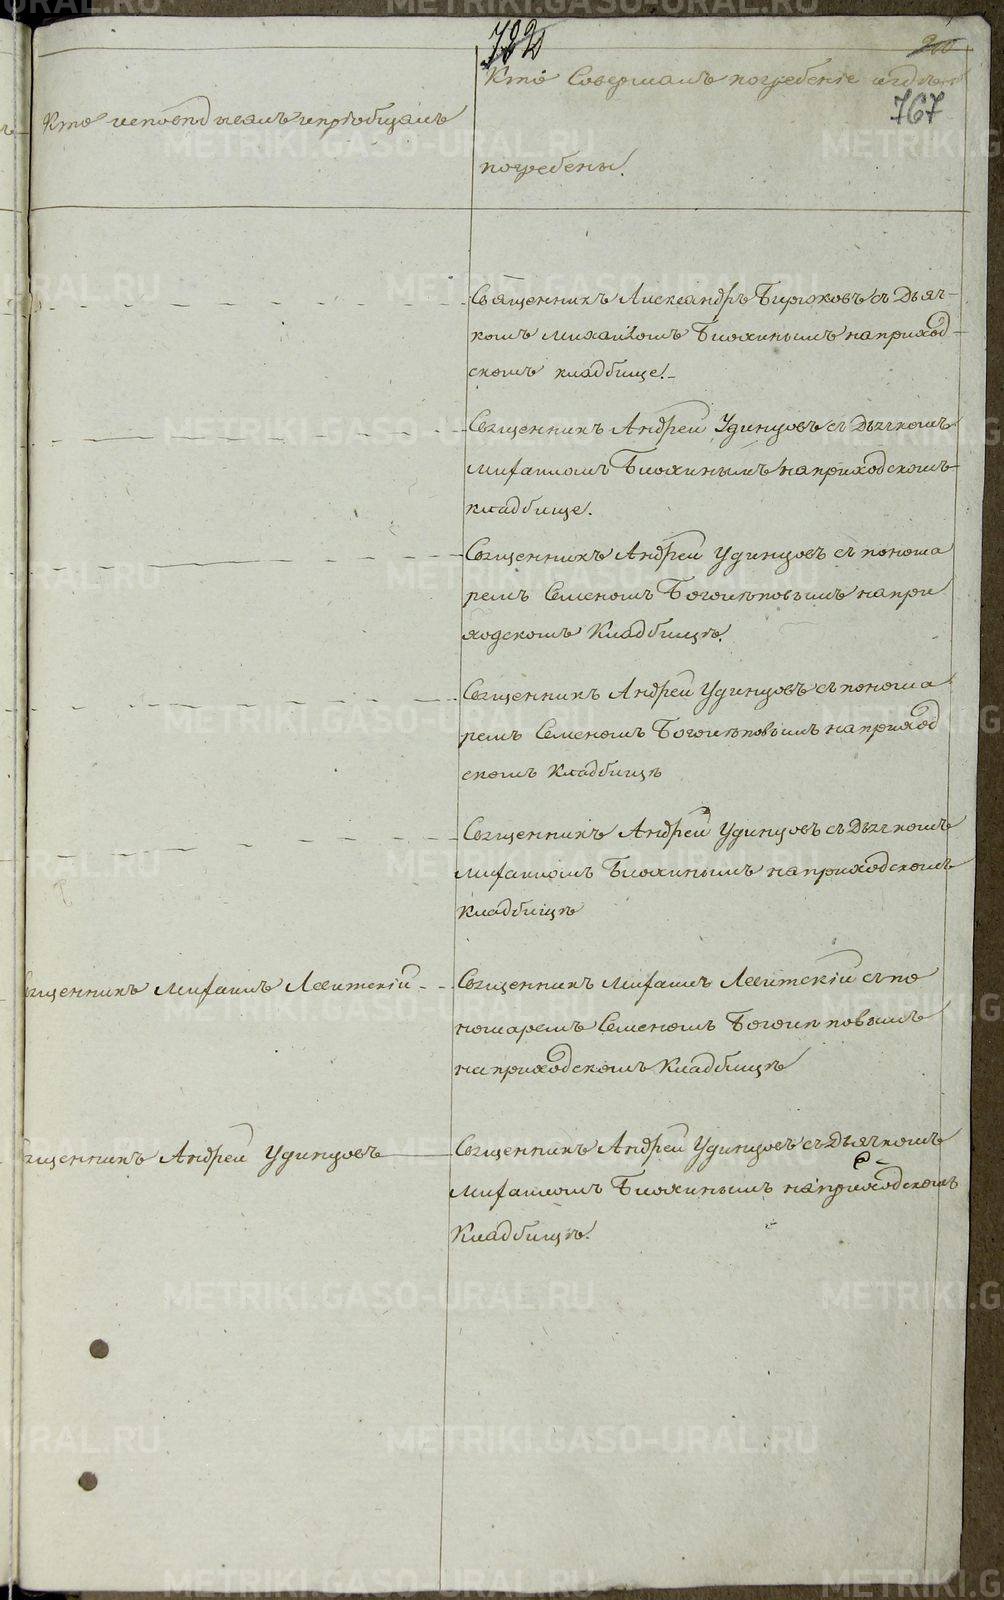 782
767
Кто исповѣдывалъ и пріобщалъ
Кто Совершалъ погребеніе и гдѣ
погребены.
Священникъ Александръ Бирюковъ съ Дьяч-
комъ Михаиломъ Блохинымъ на приход-
скомъ кладбище.
Священникъ Андрей Удинцовъ съ Дьячкомъ
Михаиломъ Блохинымъ на приходскомъ
кладбище.
Священникъ Андрей Удинцовъ съ понома
ремъ Семеномъ Боголѣповымъ на при
ходскомъ Кладбищѣ.
Священникъ Андрей Удинцовъ съ понома
ремъ Семеномъ Боголѣповымъ на приход
скомъ Кладбищѣ
Священникъ Андрей Удинцовъ съ Дьячкомъ
Михаиломъ Блохинымъ на приходскомъ
Кладбищѣ
Священникъ Михаилъ Левитскій
Священникъ Михаилъ Левитскій съ по
номаремъ Семеномъ Боголѣповымъ
на приходскомъ Кладбищѣ
Священникъ Андрей Удинцовъ
Священникъ Андрей Удинцовъ съ Дьячкомъ
Михаиломъ Блохинымъ на приходскомъ
Кладбищѣ.
METRIKI.GASO-URAL.RU